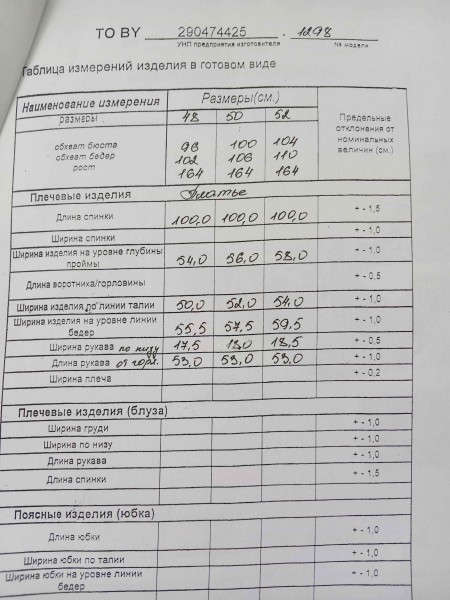 ТО BY 290474425 . 1298
УНП предприятия изготовителя № модели
Таблица измерений изделия в готовом виде
Наименование измерения Размеры(см.) Предельные отклонения от номинальных величин (см.)
размеры 48 50 52
обхват бюста 96 100 104
обхват бедер 102 106 110
рост 164 164 164
Плечевые изделия Платье
Длина спинки 100,0 100,0 100,0 + - 1,5
Ширина спинки + - 1,0
Ширина изделия на уровне глубины проймы 54,0 56,0 58,0 + - 1,0
Длина воротника/горловины + - 0,5
Ширина изделия по линии талии 50,0 52,0 54,0 + - 1,0
Ширина изделия на уровне линии бедер 55,5 57,5 59,5 + - 1,0
Ширина рукава по низу 17,5 18,0 18,5 + - 0,5
Длина рукава от горл. 53,0 53,0 53,0 + - 1,0
Ширина плеча + - 0,2
Плечевые изделия (блуза)
Ширина груди + - 1,0
Ширина по низу + - 1,0
Длина рукава + - 1,0
Длина спинки + - 1,5
Поясные изделия (юбка)
Длина юбки + - 1,0
Ширина юбки по талии + - 1,0
Ширина юбки на уровне линии бедер + - 1,0